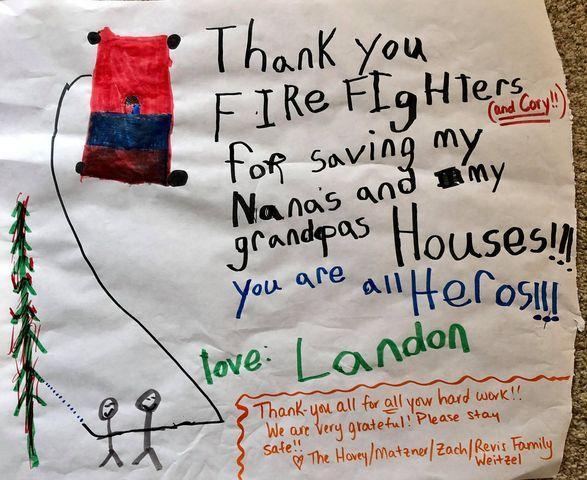 Thank you
FIRe FIgHTers
(and Cory!!)
for saving my
Nana's and my
grandpas Houses!!!
you are all Heros!!!
love: Landon
Thank-you all for all your hard work!!
We are very grateful! Please stay
safe!!
♡ The Hovey/Matzner/Zach/Revis Family
Weitzel